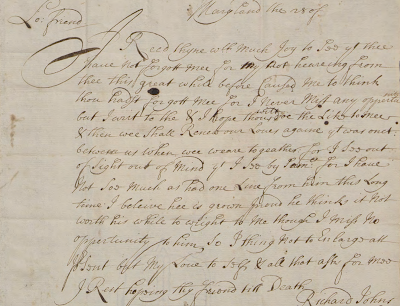 Maryland the 28 of
Lo: friend
I Reed thyne wth Much Joy to Soo yt thee
have not forgott mee for my Not heareing from
thee this great while before Caused me to think
thou hadst forgott mee for I Never Miss any
but I writ to the & I hope thou the Like to mee
& then wee Shall Renew our Loves againe yt was onct
between us when wee weare togeather for I Soo out
of Sight out of Mind yt I Soo by for I have
Not Soo Much as had one Line from him this Long
time I beleive hee is grown proud he thinks it not
worth his while to wright to Me though I Miss No
opportunity to him, So I thing Not to Enlarge att
but My Love to & all that asks for mee
I Rest hopeing thy friend till Death
Richard Johns